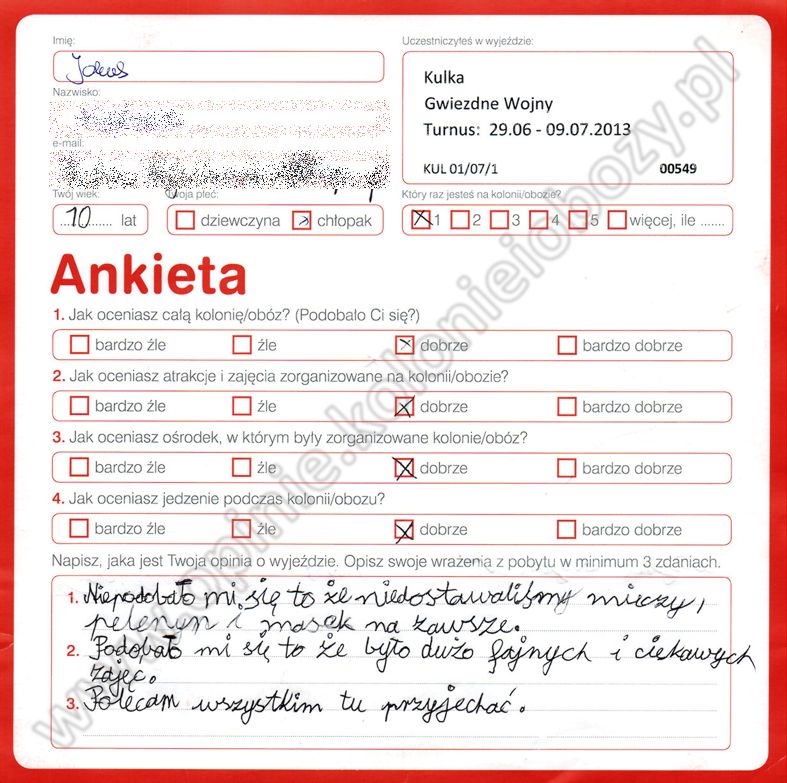 Imię:
Jakub
Nazwisko:
e-mail:
Twój wiek:
10 lat
Twoja płeć:
dziewczyna chłopak
Uczestniczyłeś w wyjeździe:
Kulka
Gwiezdne Wojny
Turnus: 29.06 - 09.07.2013
KUL 01/07/1 00549
Który raz jesteś na kolonii/obozie?
1 2 3 4 5 więcej, ile .......
Ankieta
1. Jak oceniasz całą kolonię/obóz? (Podobało Ci się?)
bardzo źle źle dobrze bardzo dobrze
2. Jak oceniasz atrakcje i zajęcia zorganizowane na kolonii/obozie?
bardzo źle źle dobrze bardzo dobrze
3. Jak oceniasz ośrodek, w którym były zorganizowane kolonie/obóz?
bardzo źle źle dobrze bardzo dobrze
4. Jak oceniasz jedzenie podczas kolonii/obozu?
bardzo źle źle dobrze bardzo dobrze
Napisz, jaka jest Twoja opinia o wyjeździe. Opisz swoje wrażenia z pobytu w minimum 3 zdaniach.
1. Niepodobało mi się to że niedostawaliśmy mieczy,
peleryn i masek na zawsze.
2. Podobało mi się to że było dużo fajnych i ciekawych
zajęc.
3. Polecam wszystkim tu przyjechać.
www.opinie.kolonieiobozy.pl